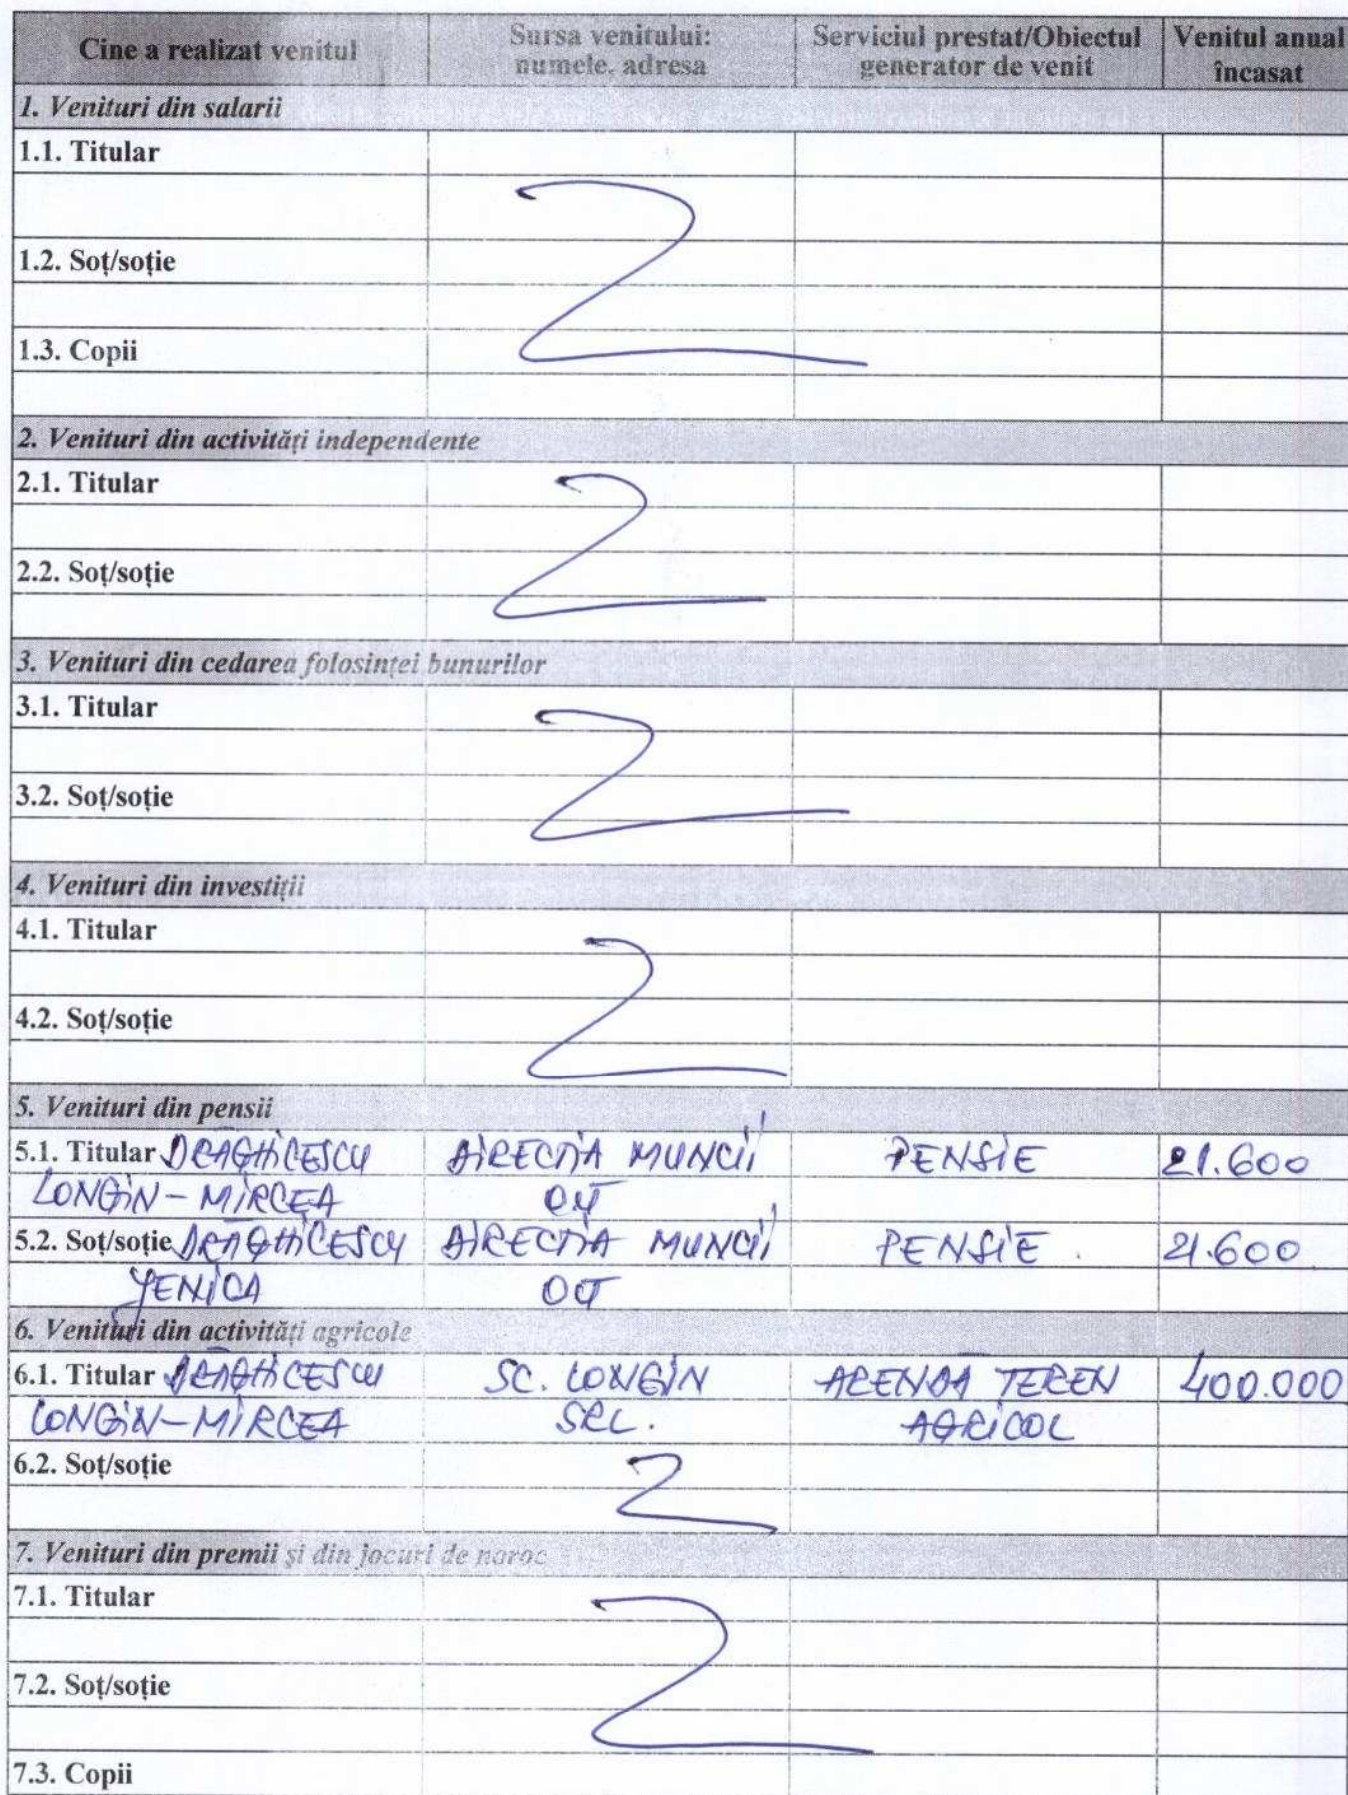 Cine a realizat venitul Sursa venitului: numele, adresa Serviciul prestat/Obiectul generator de venit Venitul anual încasat
1. Venituri din salarii
1.1. Titular
1.2. Soț/soție
1.3. Copii
2. Venituri din activități independente
2.1. Titular
2.2. Soț/soție
3. Venituri din cedarea folosinței bunurilor
3.1. Titular
3.2. Soț/soție
4. Venituri din investiții
4.1. Titular
4.2. Soț/soție
5. Venituri din pensii
5.1. Titular DRĂGHICESCU DIRECȚIA MUNCII PENSIE 21.600
LONGIN-MIRCEA OLT
5.2. Soț/soție DRĂGHICESCU DIRECȚIA MUNCII PENSIE. 21.600
JENICA OLT
6. Venituri din activități agricole
6.1. Titular DRĂGHICESCU SC. LONGIN ARENDĂ TEREN 400.000
LONGIN-MIRCEA SRL. AGRICOL
6.2. Soț/soție
7. Venituri din premii și din jocuri de noroc
7.1. Titular
7.2. Soț/soție
7.3. Copii